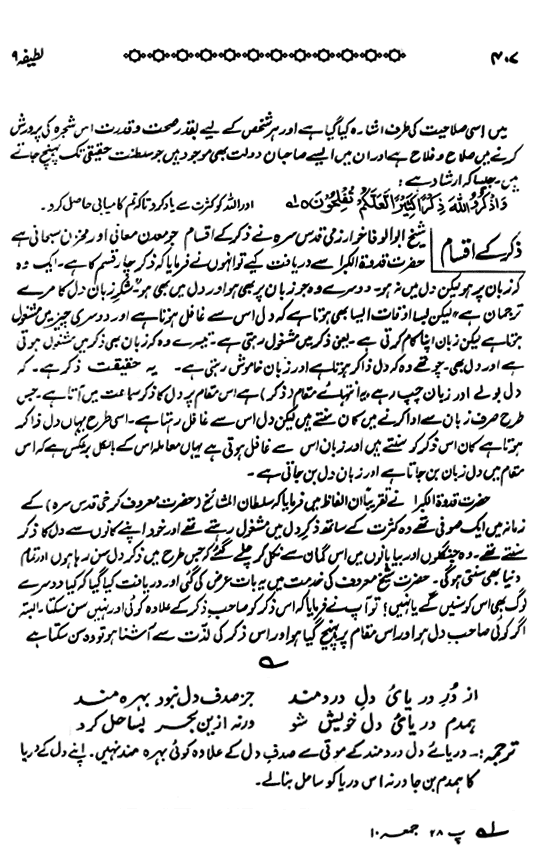 ۴۰۷ لطیفہ ۹
میں اسی صلاحیت کی طرف اشارہ کیا گیا ہے اور ہر شخص کے لیے بقدر صحت و قدرت اس شجرہ کی پرورش
کرنے میں صلاح و فلاح ہے اور ان میں ایسے صاحبان دولت بھی موجود ہیں جو سلطنت حقیقی تک پہنچ جاتے
ہیں۔ جیسا کہ ارشاد ہے:
وَاذْكُرُوا اللهَ ذِكْرًا كَثِيْرًا لَّعَلَّكُمْ تُفْلِحُوْنَ ۱ اور اللہ کو کثرت سے یاد کرو تاکہ تم کامیابی حاصل کرو۔
ذکر کے اقسام
شیخ ابوالوفا خوارزمی قدس سرہ نے ذکر کے اقسام جو معدن معانی اور مخزن سبحانی ہے
حضرت قدوۃ الکبرا سے دریافت کیے تو انہوں نے فرمایا کہ ذکر چار قسم کا ہے۔ ایک وہ
کہ زبان پر ہو لیکن دل میں نہ ہو۔ دوسرے وہ جو زبان پر بھی ہو اور دل میں بھی ہو "شکرِ زبان دل کا مرے
ترجمان ہے" لیکن بسا اوقات ایسا بھی ہوتا ہے کہ دل اس سے غافل ہوتا ہے اور دوسری چیز میں مشغول
ہوتا ہے لیکن زبان اپنا کام کرتی ہے۔ یعنی ذکر میں مشغول رہتی ہے۔ تیسرے وہ کہ زبان بھی ذکر میں مشغول ہوتی
ہے اور دل بھی۔ چوتھے وہ کہ دل ذاکر ہوتا ہے اور زبان خاموش رہتی ہے۔ یہ حقیقت ذکر ہے۔ کہ
دل بولے اور زبان چپ رہے یہ انتہائے مقام (ذکر) ہے اس مقام پر دل کا ذکر سماعت میں آتا ہے۔ جس
طرح صرف زبان سے ادا کرنے میں کان سنتے ہیں لیکن دل اس سے غافل رہتا ہے۔ اسی طرح یہاں دل ذاکر
ہوتا ہے کان اس ذکر کو سنتے ہیں اور زبان اس سے غافل ہوتی ہے یہاں معاملہ اس کے بالکل برعکس ہے کہ اس
مقام میں دل زبان بن جاتا ہے اور زبان دل بن جاتی ہے۔
حضرت قدوۃ الکبرا نے تقریباً ان الفاظ میں فرمایا کہ سلطان المشائخ (حضرت معروف کرخی قدس سرہ) کے
زمانہ میں ایک صوفی تھے وہ کثرت کے ساتھ ذکر دل میں مشغول رہتے تھے اور خود اپنے کانوں سے دل کا ذکر
سنتے تھے۔ وہ جنگلوں اور بیابانوں میں اس گمان سے نکل کر چلے گئے کہ جس طرح میں ذکر دل سن رہا ہوں اور تمام
دنیا بھی سنتی ہوگی۔ حضرت شیخ معروف کی خدمت میں یہ بات عرض کی گئی اور دریافت کیا گیا کہ کیا دوسرے
لوگ بھی اس کو سنیں گے یا نہیں؟ تو آپ نے فرمایا کہ اس ذکر کو صاحب ذکر کے علاوہ کوئی اور نہیں سن سکتا۔ البتہ
اگر کوئی صاحب دل ہو اور اس مقام پر پہنچ گیا ہو اور اس ذکر کی لذت سے آشنا ہو تو وہ سن سکتا ہے
از دُرِ دریائ دلِ دردمند جز صدف دل نبود بہرہ مند
ہمدم دریائ دل خویش شو ورنہ ازین بحر بساحل کرد
ترجمہ:۔ دریائے دل دردمند کے موتی سے صدفِ دل کے علاوہ کوئی بہرہ مند نہیں۔ اپنے دل کے دریا
کا ہمدم بن جا ورنہ اس دریا کو ساحل بنالے۔
۱ پ ۲۸ جمعہ ۱۰